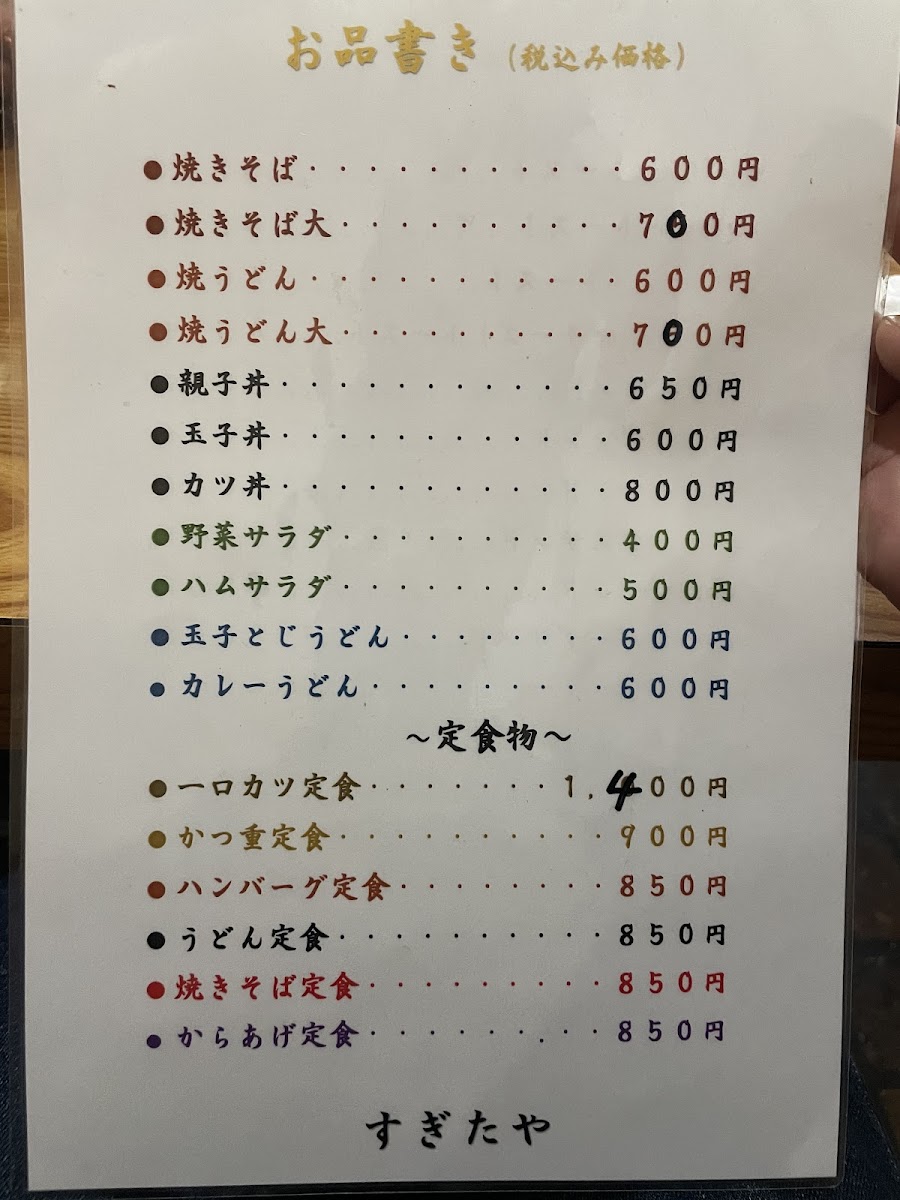 お品書き (税込み価格)
●焼きそば・・・・・・・・・・・・600円
●焼きそば大・・・・・・・・・・・700円
●焼うどん・・・・・・・・・・・・600円
●焼うどん大・・・・・・・・・・・700円
●親子丼・・・・・・・・・・・・・650円
●玉子丼・・・・・・・・・・・・・600円
●カツ丼・・・・・・・・・・・・・800円
●野菜サラダ・・・・・・・・・・・400円
●ハムサラダ・・・・・・・・・・・500円
●玉子とじうどん・・・・・・・・・600円
●カレーうどん・・・・・・・・・・600円
～定食物～
●一口カツ定食・・・・・・・・1,400円
●かつ重定食・・・・・・・・・・・900円
●ハンバーグ定食・・・・・・・・・850円
●うどん定食・・・・・・・・・・・850円
●焼きそば定食・・・・・・・・・・850円
●からあげ定食・・・・・・・・・・850円
すぎたや